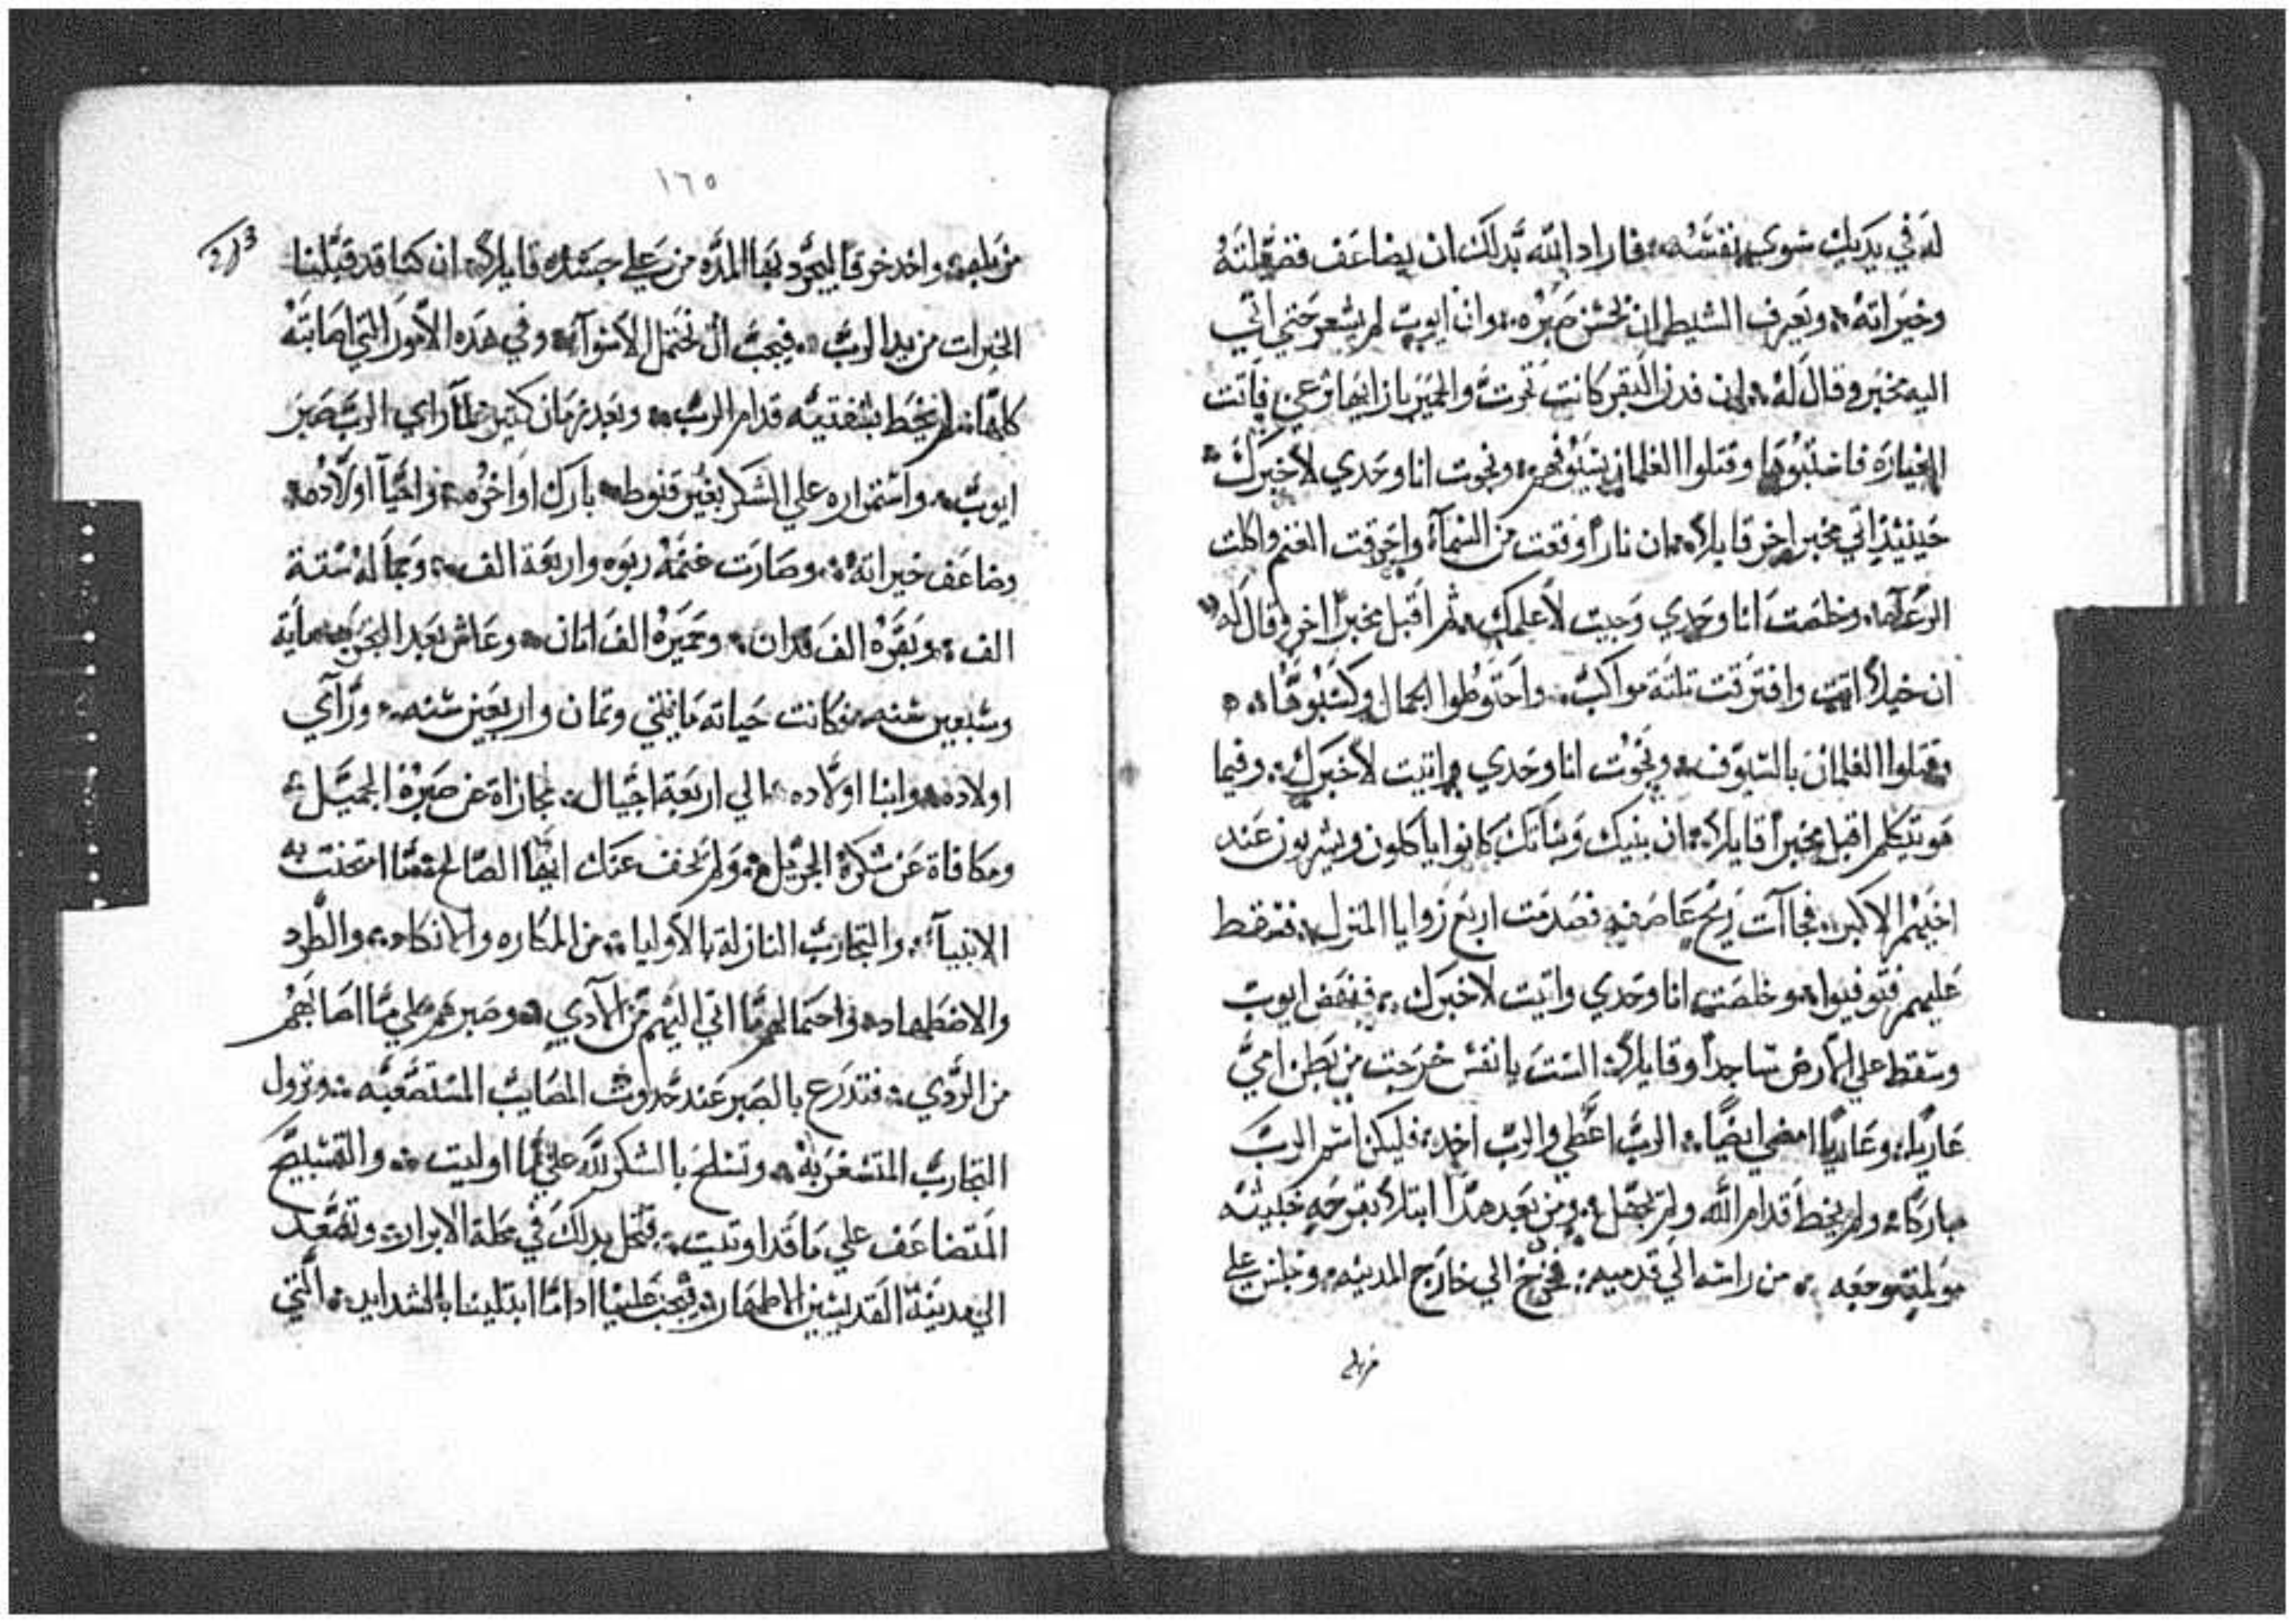 له في يديك سوي نفسه فاراد الله بدلك ان يضاعف فضيلته
وخيراته ويعرف الشيطان حسن صبره وان ايوب لم يشعر حتي اتي
اليه مخبر وقال له ان فدن البقر كانت تحرث والحمير بازايها ترعي فاتت
الغياره فاستبوها وقتلوا الغلمان بسيوفهم ونجوت انا وحدي لاخبرك
حينيذ اتي مخبر اخر قايلاً ان ناراً وقعت من السمآء واحرقت الغنم واكلت
الرعآه وخلصت انا وحدي وجيت لاعلمك ثم اقبل مخبراً اخر وقال له
ان خيلاً اتت وافترقت تلتة مواكب واحتوطوا الجمال وكسبوها
وقتلوا الغلمان بالسيوف ونجوت انا وحدي واتيت لاخبرك وفيما
هو يتكلم اقبل مخبراً قايلاً ان بنيك وبناتك كانوا ياكلون ويشربون عند
اخيهم الاكبر فجاآت ريح عاصفه فصدمت اربع زوايا المنزل فسقط
عليهم فتوفيوا وخلصت انا وحدي واتيت لاخبرك فنهض ايوب
وسقط علي الارض ساجداً وقايلاً الست يا نفس خرجت من بطن امي
عارياً وعارياً امضي ايضاً الرب اعطي والرب اخد فليكن اسم الرب
مباركاً ولم يخط قدام الله ولم يجهل ومن بعد هدا ابتلاه بقرحه خبيثه
من راسه الي قدميه فخرج الي خارج المدينه وجلس علي
مزبله
١٦٥
مزبله واخد خزفاً ليجرد بها المده من علي جسده قايلاً ان كنا قد قبلنا
الخيرات من يد الرب فيجب ان نحتمل الاسوآء وفي هده الامور التي اصابته
كلها لم يخط بشفتيه قدام الرب وبعد زمان كتير لما راي الرب صبر
ايوب واستمراره علي الشكر بغير قنوط بارك اواخره واحيا اولاده
وضاعف خيراته وصارت غنمه ربوه واربعة الف وجماله ستة
الف وبقره الف فدان وحميره الف اتان وعاش بعد التجربه مايه
وسبعين سنه فكانت حياته مايتي وتمان واربعين سنه وراي
اولاده وابنا اولاده الي اربعة اجيال مجازاة عن صبره الجميل
ومكافاة عن شكره الجزيل ولم تخف عنك ايها الصالح ما امتحنت به
الانبيآء والتجارب النازلة بالاوليا من المكاره والانكاد والطرد
والاضطهاد واحتمالهم ما اتي اليهم من الادي وصبرهم علي ما اصابهم
من الردي فتدرع بالصبر عند حدوث المصايب المستصعبه ونزول
التجارب المستغربه وتسلح بالشكر لله علي ما اوليت والتسبيح
المتضاعف علي ما قد اوتيت فتحل بدلك في محلة الابرار وتصعد
الي مدينة القديسين الاطهار ويجب علينا ادا ما ابتلينا بالشدايد التي